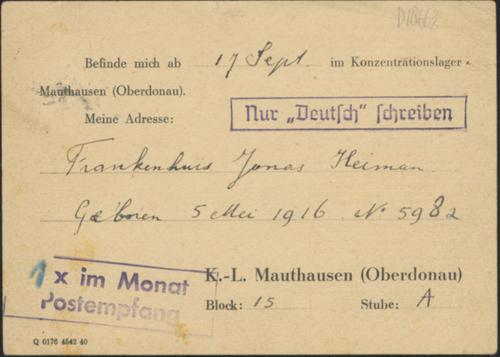 D18663
Befinde mich ab 17 Sept. im Konzentrationslager
Mauthausen (Oberdonau).
Nur „Deutsch" schreiben
Meine Adresse:
Frankenhuis Jonas Heiman.
Geboren 5 Mei 1916. No 5982
1 x im Monat
Postempfang
K.-L. Mauthausen (Oberdonau)
Block: 15 Stube: A
Q 0176 4542 40